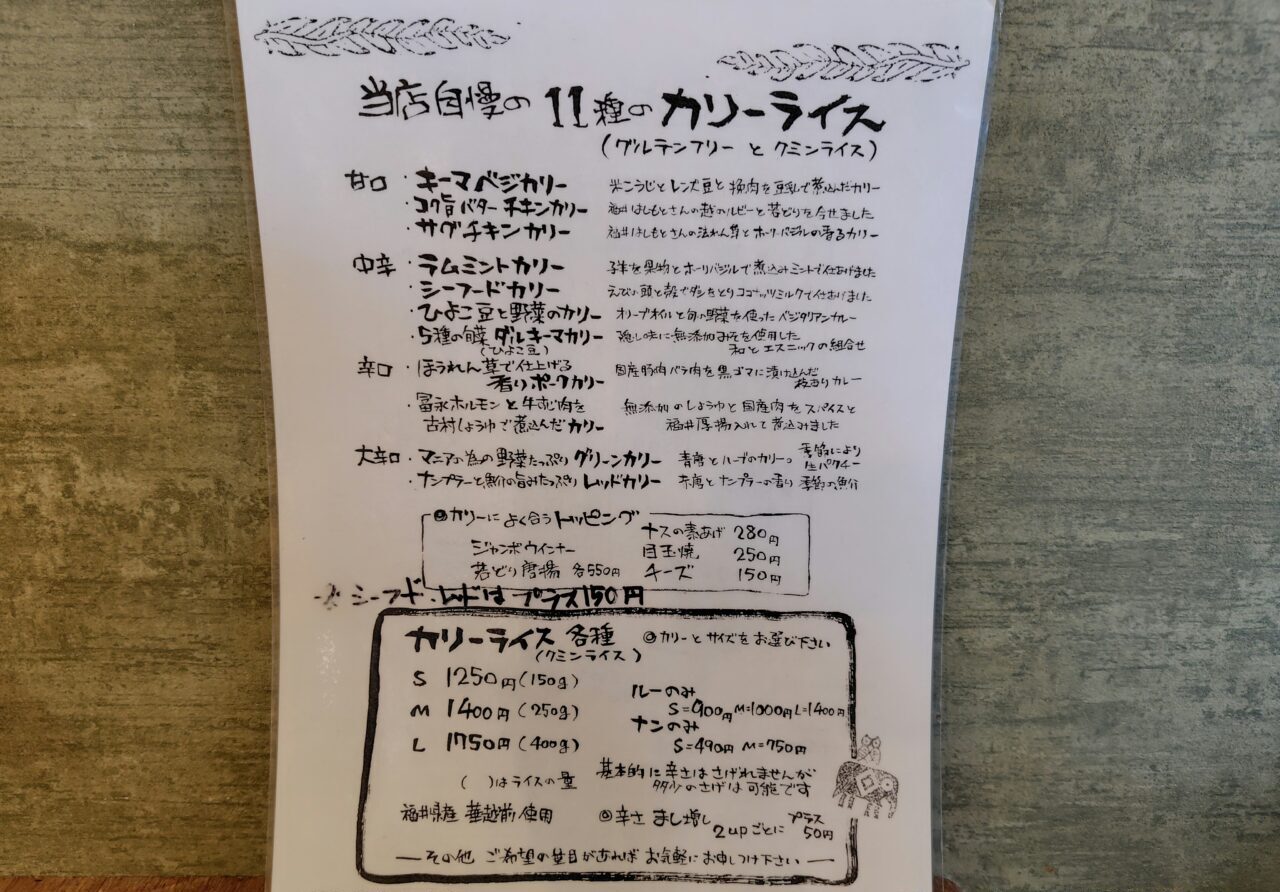 当店自慢の 11種の カリーライス
(グルテンフリー と クミンライス)
甘口 ・キーマベジカリー 米こうじとレンズ豆と挽肉を豆乳で煮込んだカリー
・コク旨バターチキンカリー 福井はしもとさんの越のルビーと若どりを合せました
・サグチキンカリー 福井はしもとさんの法れん草とホーリーバジルの香るカリー
中辛 ・ラムミントカリー 子羊を果物とホーリバジルで煮込みミントで仕あげました
・シーフードカリー えびの頭と殻でダシをとりココナッツミルクで仕あげました
・ひよこ豆と野菜のカリー オリーブオイルと旬の野菜を使ったベジタリアンカレー
・5種の旬菜 ダルキーマカリー 隠し味に無添加みそを使用した
(ひよこ豆) 和とエスニックの組合せ
辛口 ・ほうれん草で仕上げる 国産豚肉バラ肉を黒ゴマに漬け込んだ
香りポークカリー カレー
・冨永ホルモンと牛すじ肉を 無添加のしょうゆと国産肉をスパイスと
古村しょうゆで煮込んだカリー 福井厚揚入れて煮込みました
大辛口 ・マニアの為の野菜たっぷり グリーンカリー 青唐とハーブのカリー。 季節により
生パクチー
・ナンプラーと魚介の旨みたっぷり レッドカリー 赤唐とナンプラーの香り 季節の魚介
◎カリーによく合うトッピング
ナスの素あげ 280円
ジャンボウインナー 目玉焼 250円
若どり唐揚 各550円 チーズ 150円
シーフド・レッドは プラス150円
カリーライス 各種 ◎カリーとサイズをお選び下さい
(クミンライス)
S 1250円(150g) ルーのみ
M 1400円(250g) S=900円 M=1000円 L=1400円
ナンのみ
L 1750円(400g) S=490円 M=750円
( )はライスの量 基本的に辛さはさげれませんが
多少のさげは可能です
福井県産 華越前使用 ◎辛さ まし増し プラス
2upごとに 50円
― その他 ご希望の並目があれば お気軽にお申しつけ下さい ―